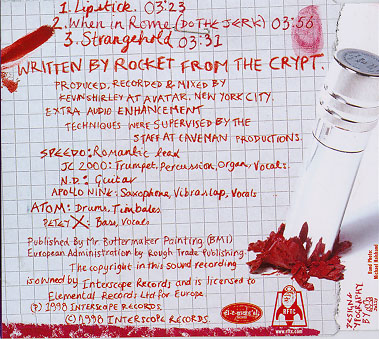 1. Lipstick. 03:23
2. When in Rome (DO THE JERK) 03:56
3. Strangehold 03:31
WRITTEN BY ROCKET FROM THE CRYPT.
PRODUCED, RECORDED & MIXED BY
KEVIN SHIRLEY AT AVATAR, NEW YORK CITY.
EXTRA AUDIO ENHANCEMENT
TECHNIQUES WERE SUPERVISED BY THE
STAFF AT CAVEMAN PRODUCTIONS.
SPEEDO: Romantic lead
JC 2000: Trumpet, Percussion, Organ, Vocals
N.D.: Guitar
APOLLO NINE: Saxophone, Vibraslap, Vocals
ATOM: Drums, Timbales
PETEY X: Bass, Vocals
Published By Mr Buttermaker Painting (BMI)
European Administration by Rough Trade Publishing.
The copyright in this sound recording
is owned by Interscope Records and is licensed to
Elemental Records Ltd for Europe.
(P) 1998 INTERSCOPE RECORDS.
© 1998 INTERSCOPE RECORDS.
RFTC
www.rftc.com